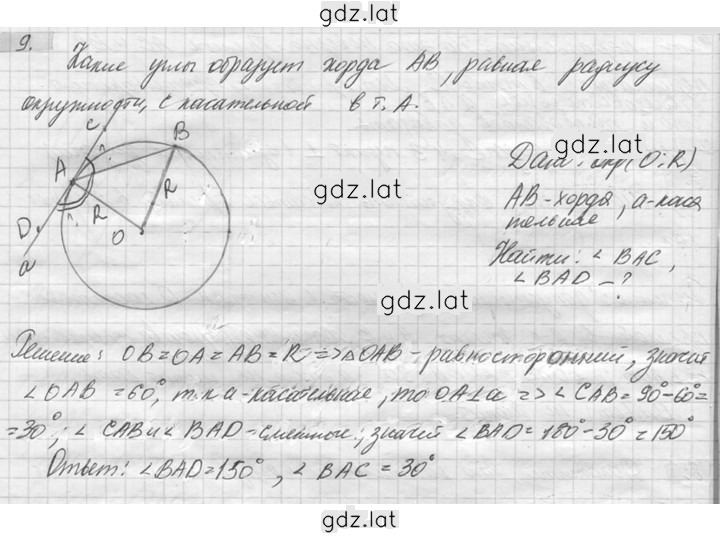 gdz.lat
9.
Какие углы образует хорда AB, равная радиусу
окружности, с касательной в т. A.
gdz.lat
C
B
A
?
Дано: окр(O; R)
R
AB - хорда, a - каса
тельная
?
R
gdz.lat
D
O
a
Найти: ∠ BAC,
∠ BAD - ?
gdz.lat
Решение: OB = OA = AB = R => △OAB - равносторонний, значит
∠OAB = 60°, т.к a - касательная, то OA⊥a => ∠ CAB = 90° - 60° =
= 30°; ∠ CAB и ∠ BAD - смежные, значит ∠ BAD = 180° - 30° = 150°
Ответ: ∠BAD = 150°, ∠ BAC = 30°
gdz.lat